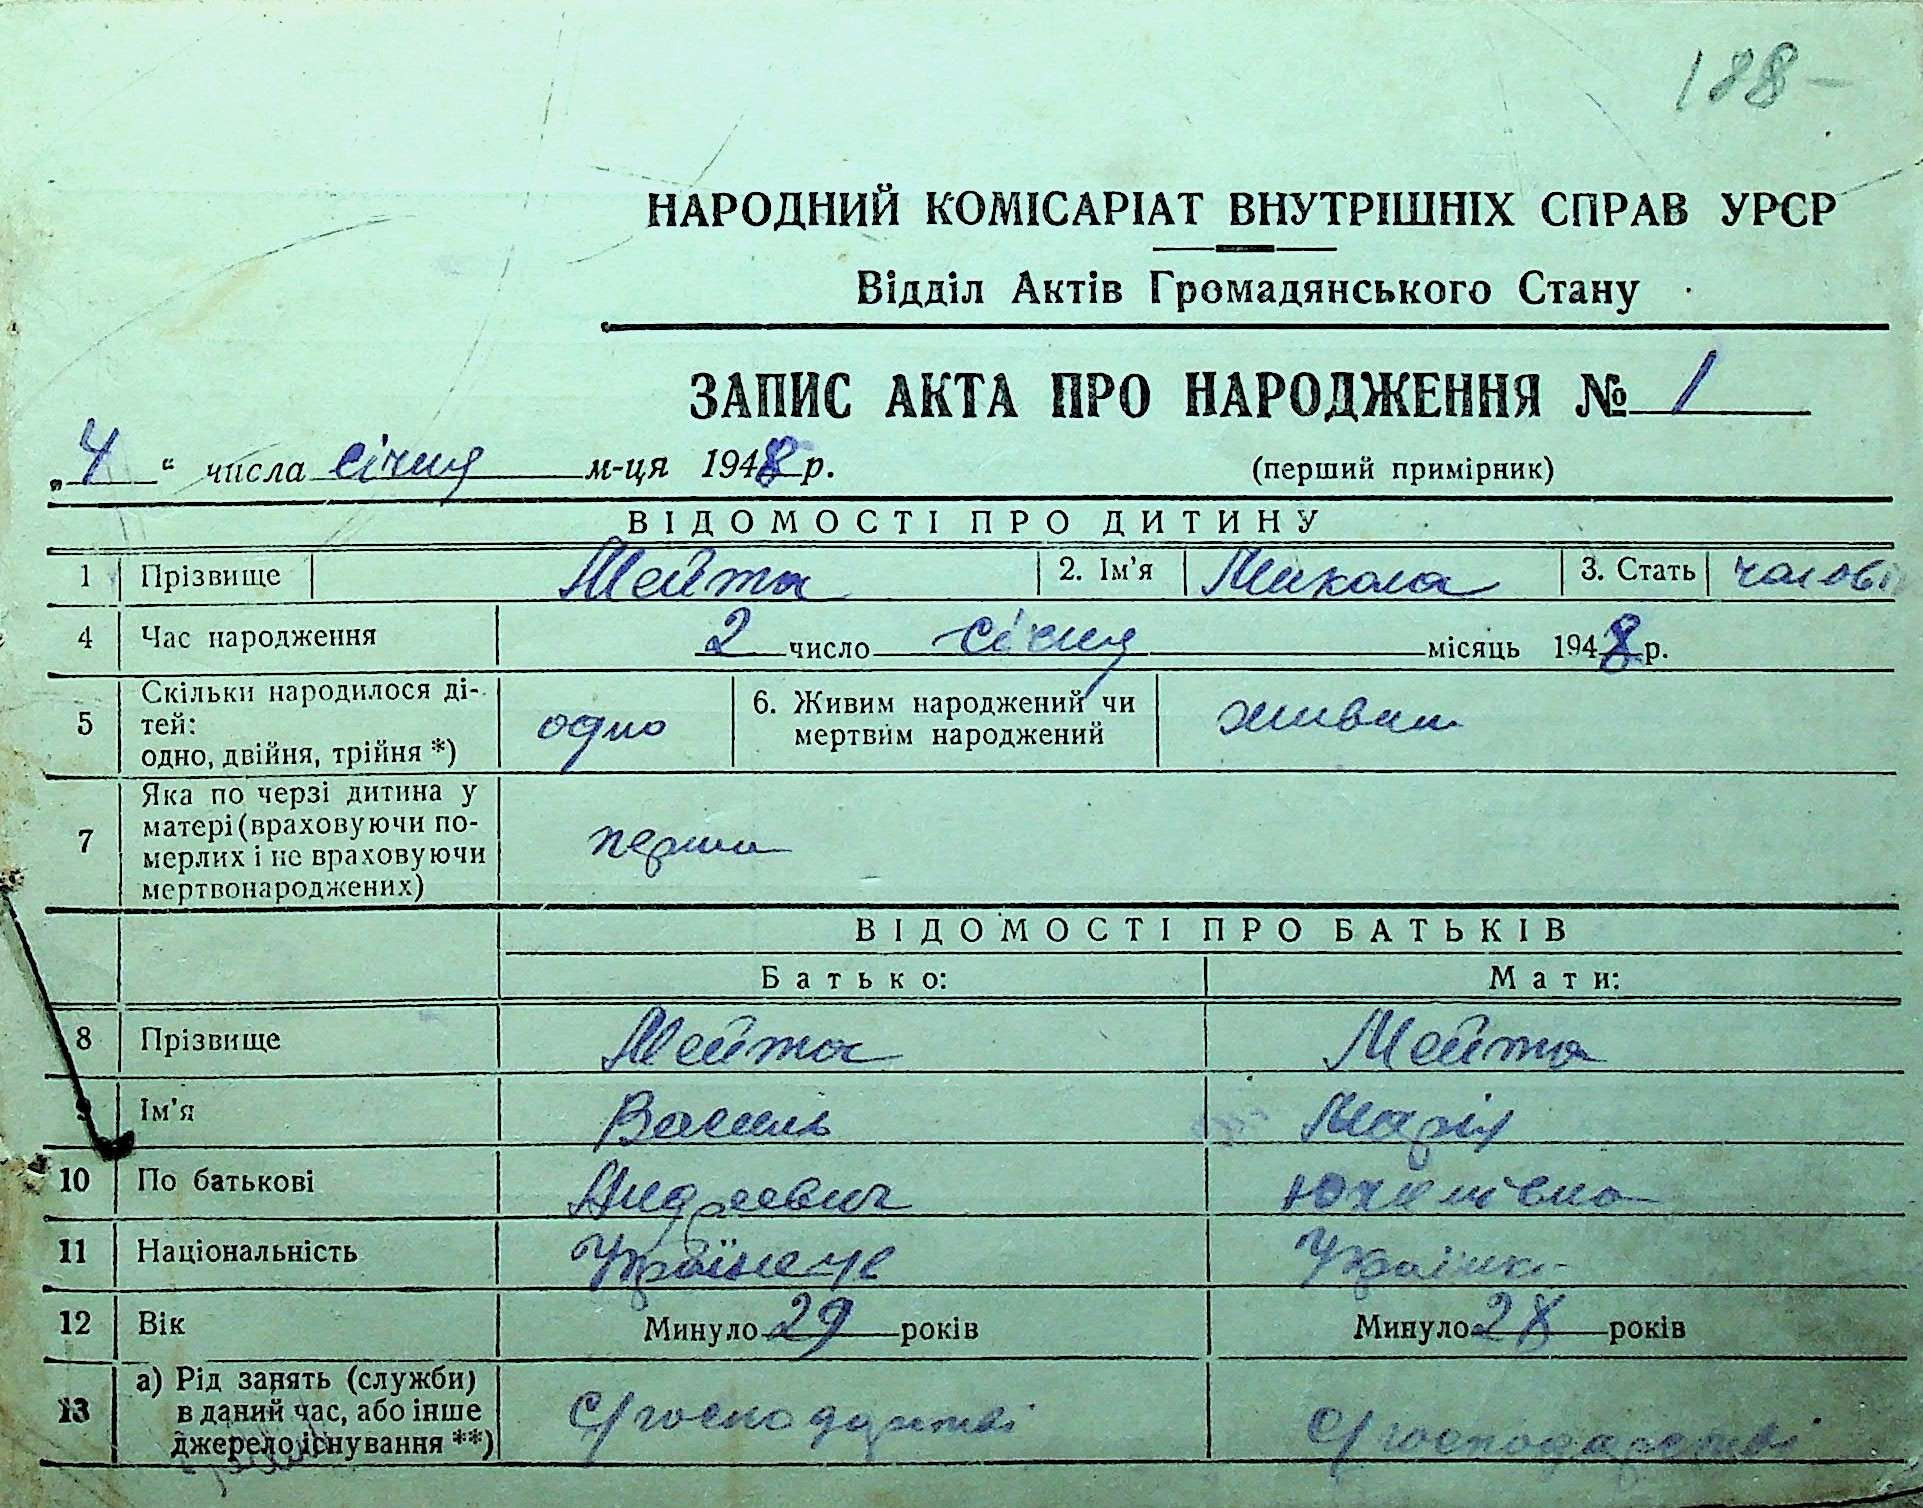 188-
НАРОДНИЙ КОМІСАРІАТ ВНУТРІШНІХ СПРАВ УРСР
Відділ Актів Громадянського Стану
ЗАПИС АКТА ПРО НАРОДЖЕННЯ № 1
„4“ числа січня м-ця 1948 р. (перший примірник)
ВІДОМОСТІ ПРО ДИТИНУ
1 Прізвище Мейта 2. Ім'я Микола 3. Стать
4 Час народження 2 число січня місяць 1948 р.
5 Скільки народилося ді-
тей:
одно, двійня, трійня *) одно 6. Живим народжений чи
мертвим народжений живим
7 Яка по черзі дитина у
матері (враховуючи по-
мерлих і не враховуючи
мертвонароджених) перша
ВІДОМОСТІ ПРО БАТЬКІВ
Батько: Мати:
8 Прізвище Мейта Мейта
9 Ім'я Василь Марія
10 По батькові Андреевич
11 Національність Українець Українка
12 Вік Минуло 29 років Минуло 28 років
13 а) Рід занять (служби)
в даний час, або інше
джерело існування **) С/господарстві С/господарстві